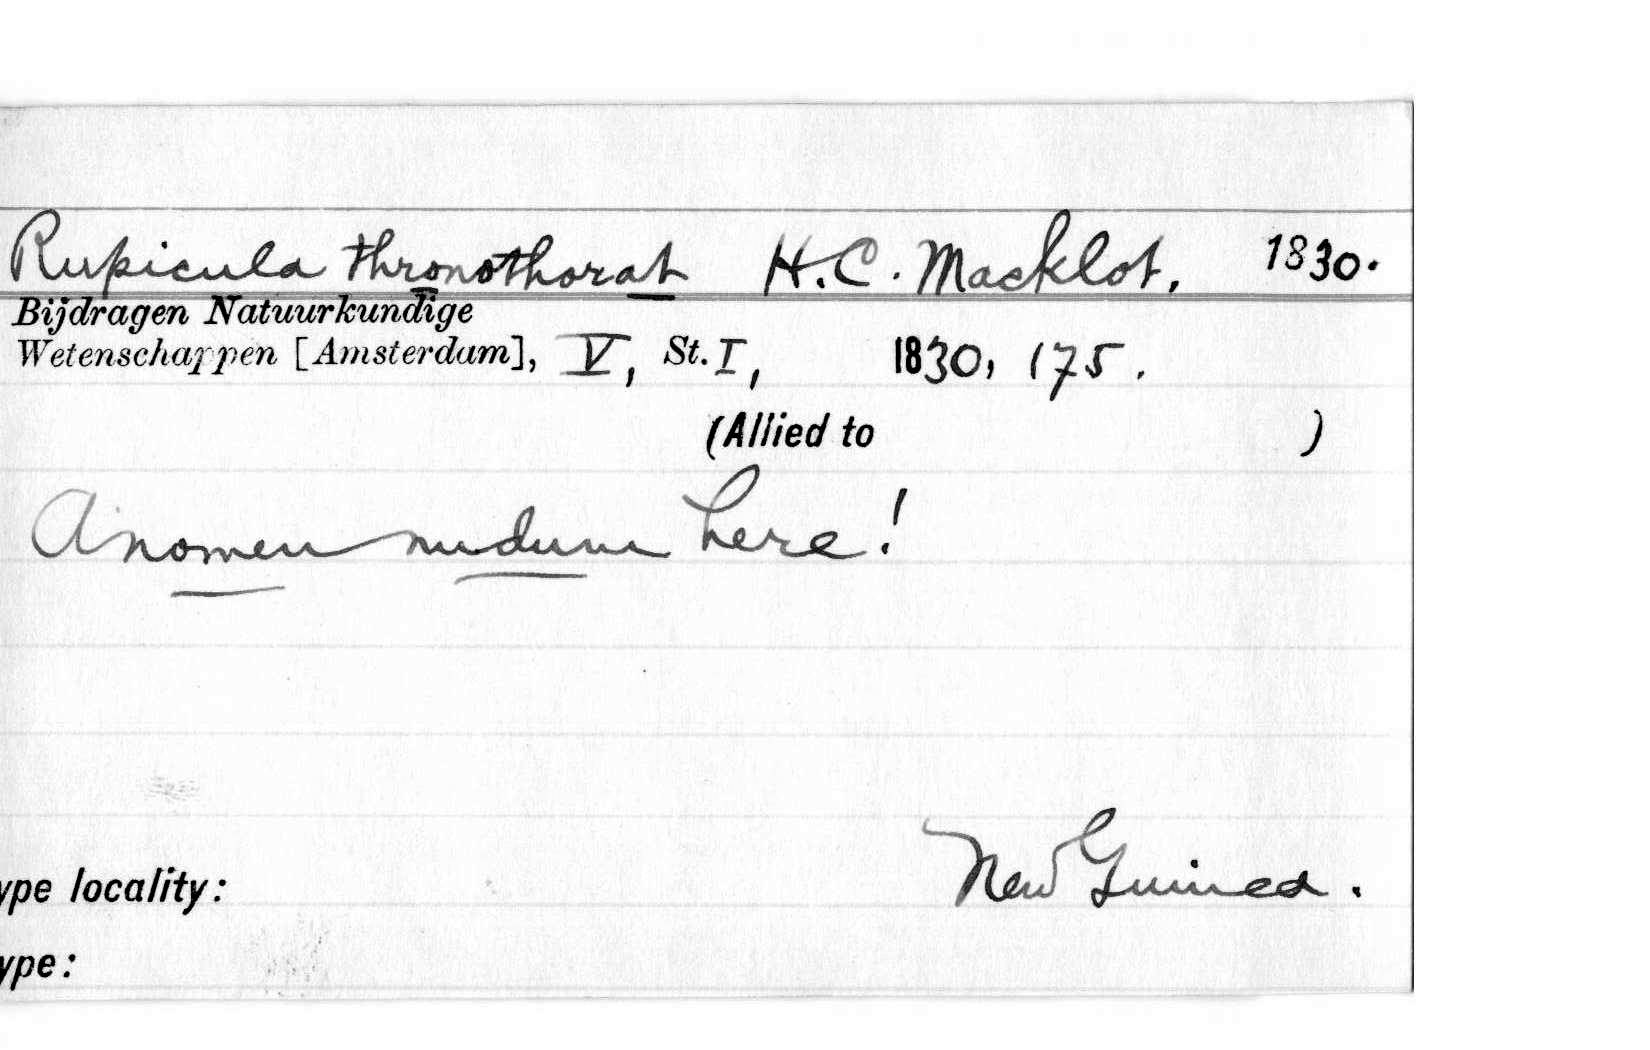 Rupicula thronothorat H.C. Macklot, 1830.
Bijdragen Natuurkundige
Wetenschappen [Amsterdam], V, St. I, 1830, 175.
(Allied to )
A nomen nudum here!
New Guinea.
ype locality:
ype: